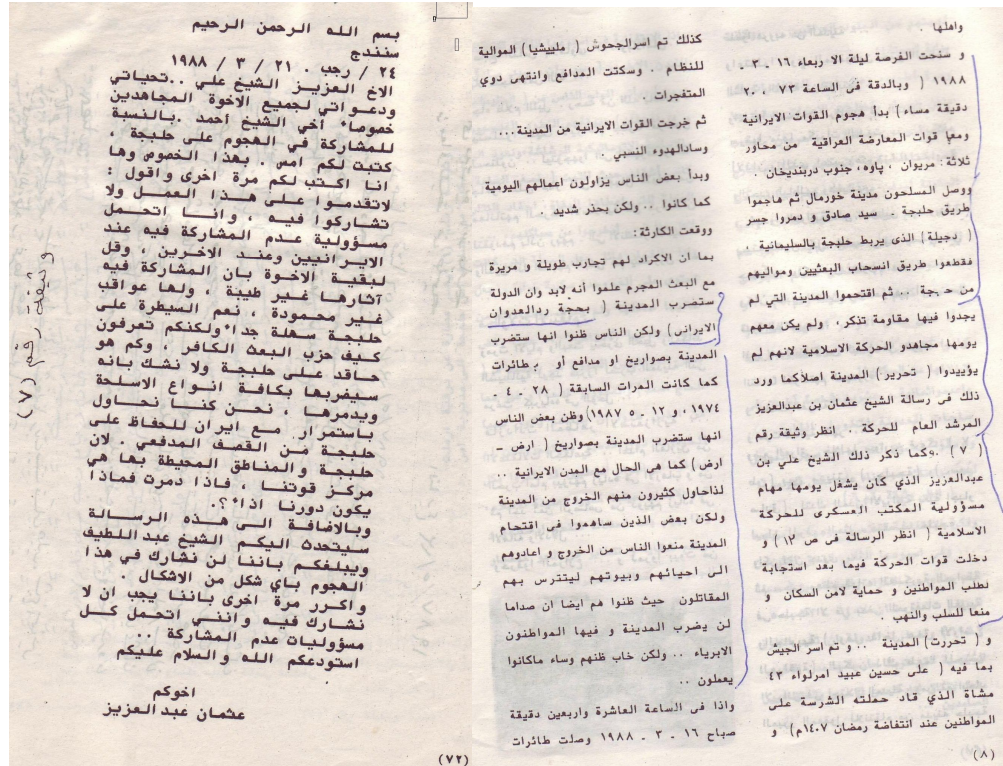 واهلها .
و سنحت الفرصة ليلة الا ربعاء ١٦ . ٣ .
١٩٨٨ ( وبالدقة فى الساعة ٧٣ . ٢٠
دقيقة مساء ) بدأ هجوم القوات الايرانية
ومعي قوات المعارضة العراقية من محاور
ثلاثة : مريوان . پاوه . جنوب دربنديخان .
ووصل المسلحون مدينة خورمال ثم هاجموا
طريق حلبجة . سيد صادق و دمروا جسر
( دجيلة ) الذى يربط حلبجة بالسليمانية .
فقطعوا طريق انسحاب البعثيين ومواليهم
من حلبجة .. ثم اقتحموا المدينة التي لم
يجدوا فيها مقاومة تذكر . ولم يكن معهم
يومها مجاهدو الحركة الاسلامية لانهم لم
يؤييدوا ( تحرير ) المدينة اصلاكما ورد
ذلك فى رسالة الشيخ عثمان بن عبدالعزيز
المرشد العام للحركة . انظر وثيقة رقم
( ٧ ) .وكما ذكر ذلك الشيخ علي بن
عبدالعزيز الذي كان يشغل يومها مهام
مسؤولية المكتب العسكرى للحركة
الاسلامية ( انظر الرسالة فى ص ١٢ ) و
دخلت قوات الحركة فيما بعد استجابة
لطلب المواطنين و حماية لامن السكان و
منعا للسلب والنهب .
و ( تحررت ) المدينة .. و تم اسر الجيش
بما فيه ( على حسين عبيد امرلواء ٤٣
مشاة الذي قاد حملته الشرسة على
المواطنين عند انتفاضة رمضان ١٤٠٧م ) و
(٨)
كذلك تم اسرالجحوش ( ملييشيا ) الموالية
للنظام . وسكتت المدافع وانتهى دوي
المتفجرات .
ثم خرجت القوات الايرانية من المدينة ...
وسادالهدوء النسبي .
وبدأ بعض الناس يزاولون اعمالهم اليومية
كما كانوا .. ولكن بحذر شديد .
ووقعت الكارثة :
بما ان الاكراد لهم تجارب طويلة و مريرة
مع البعث المجرم علموا أنه لابد وان الدولة
ستضرب المدينة ( بحجة ردالعدوان
الايرانى ) ولكن الناس ظنوا انها ستضرب
المدينة بصواريخ او مدافع أو بطائرات
كما كانت المرات السابقة ( ٢٨ . ٤ .
١٩٧٤ ، و ١٢ . ٥ .١٩٨٧ ) وظن بعض الناس
انها ستضرب المدينة بصواريخ ( ارض -
ارض ) كما هى الحال مع المدن الايرانية .
لذاحاول كثيرون منهم الخروج من المدينة
ولكن بعض الذين ساهموا فى اقتحام
المدينة منعوا الناس من الخروج و اعادوهم
الى احيائهم وبيوتهم ليتترس بهم
المقاتلون حيث ظنوا هم ايضا ان صداما
لن يضرب المدينة و فيها المواطنون
الابرياء .. ولكن خاب ظنهم وساء ماكانوا
يعملون ..
واذا فى الساعة العاشرة واربعين دقيقة
صباح ١٦ . ٣ . ١٩٨٨ وصلت طائرات
بسم الله الرحمن الرحيم
سنندج
٢٤ / رجب . ٢١ / ٣ / ١٩٨٨
الاخ العزيز الشيخ علي ..تحياتي
ودعواتي لجميع الاخوة المجاهدين
خصوصاً أخي الشيخ أحمد .بالنسبة
للمشاركة في الهجوم على حلبجة ،
كتبت لكم امس . بهذا الخصوص وها
انا اكتب لكم مرة اخرى واقول :
لاتقدموا على هذا العمل ولا
تشاركوا فيه ، وانا اتحمل
مسؤولية عدم المشاركة فيه عند
الايرانيين وعند الاخرين ، وقل
لبقية الاخوة بان المشاركة فيه
آثارها غير طيبة ، ولها عواقب
غير محمودة ، نعم السيطرة على
حلبجة سهلة جداً ولكنكم تعرفون
كيف حزب البعث الكافر ، وكم هو
حاقد على حلبجة ولا نشك بانه
سيضربها بكافة انواع الاسلحة
ويدمرها ، نحن كنا نحاول
باستمرار مع ايران للحفاظ على
حلبجة من القصف المدفعي . لان
حلبجة والمناطق المحيطة بها هي
مركز قوتنا ، فاذا دمرت فماذا
يكون دورنا اذاً ؟.
وبالاضافة الى هذه الرسالة
سيتحدث اليكم الشيخ عبد اللطيف
ويبلغكم باننا لن نشارك في هذا
الهجوم باي شكل من الاشكال .
واكرر مرة اخرى باننا يجب ان لا
نشارك فيه وانني اتحمل كل
مسؤوليات عدم المشاركة ..
استودعكم الله والسلام عليكم
اخوكم
عثمان عبد العزيز
وثيقة رقم (٧)
(٧٢)